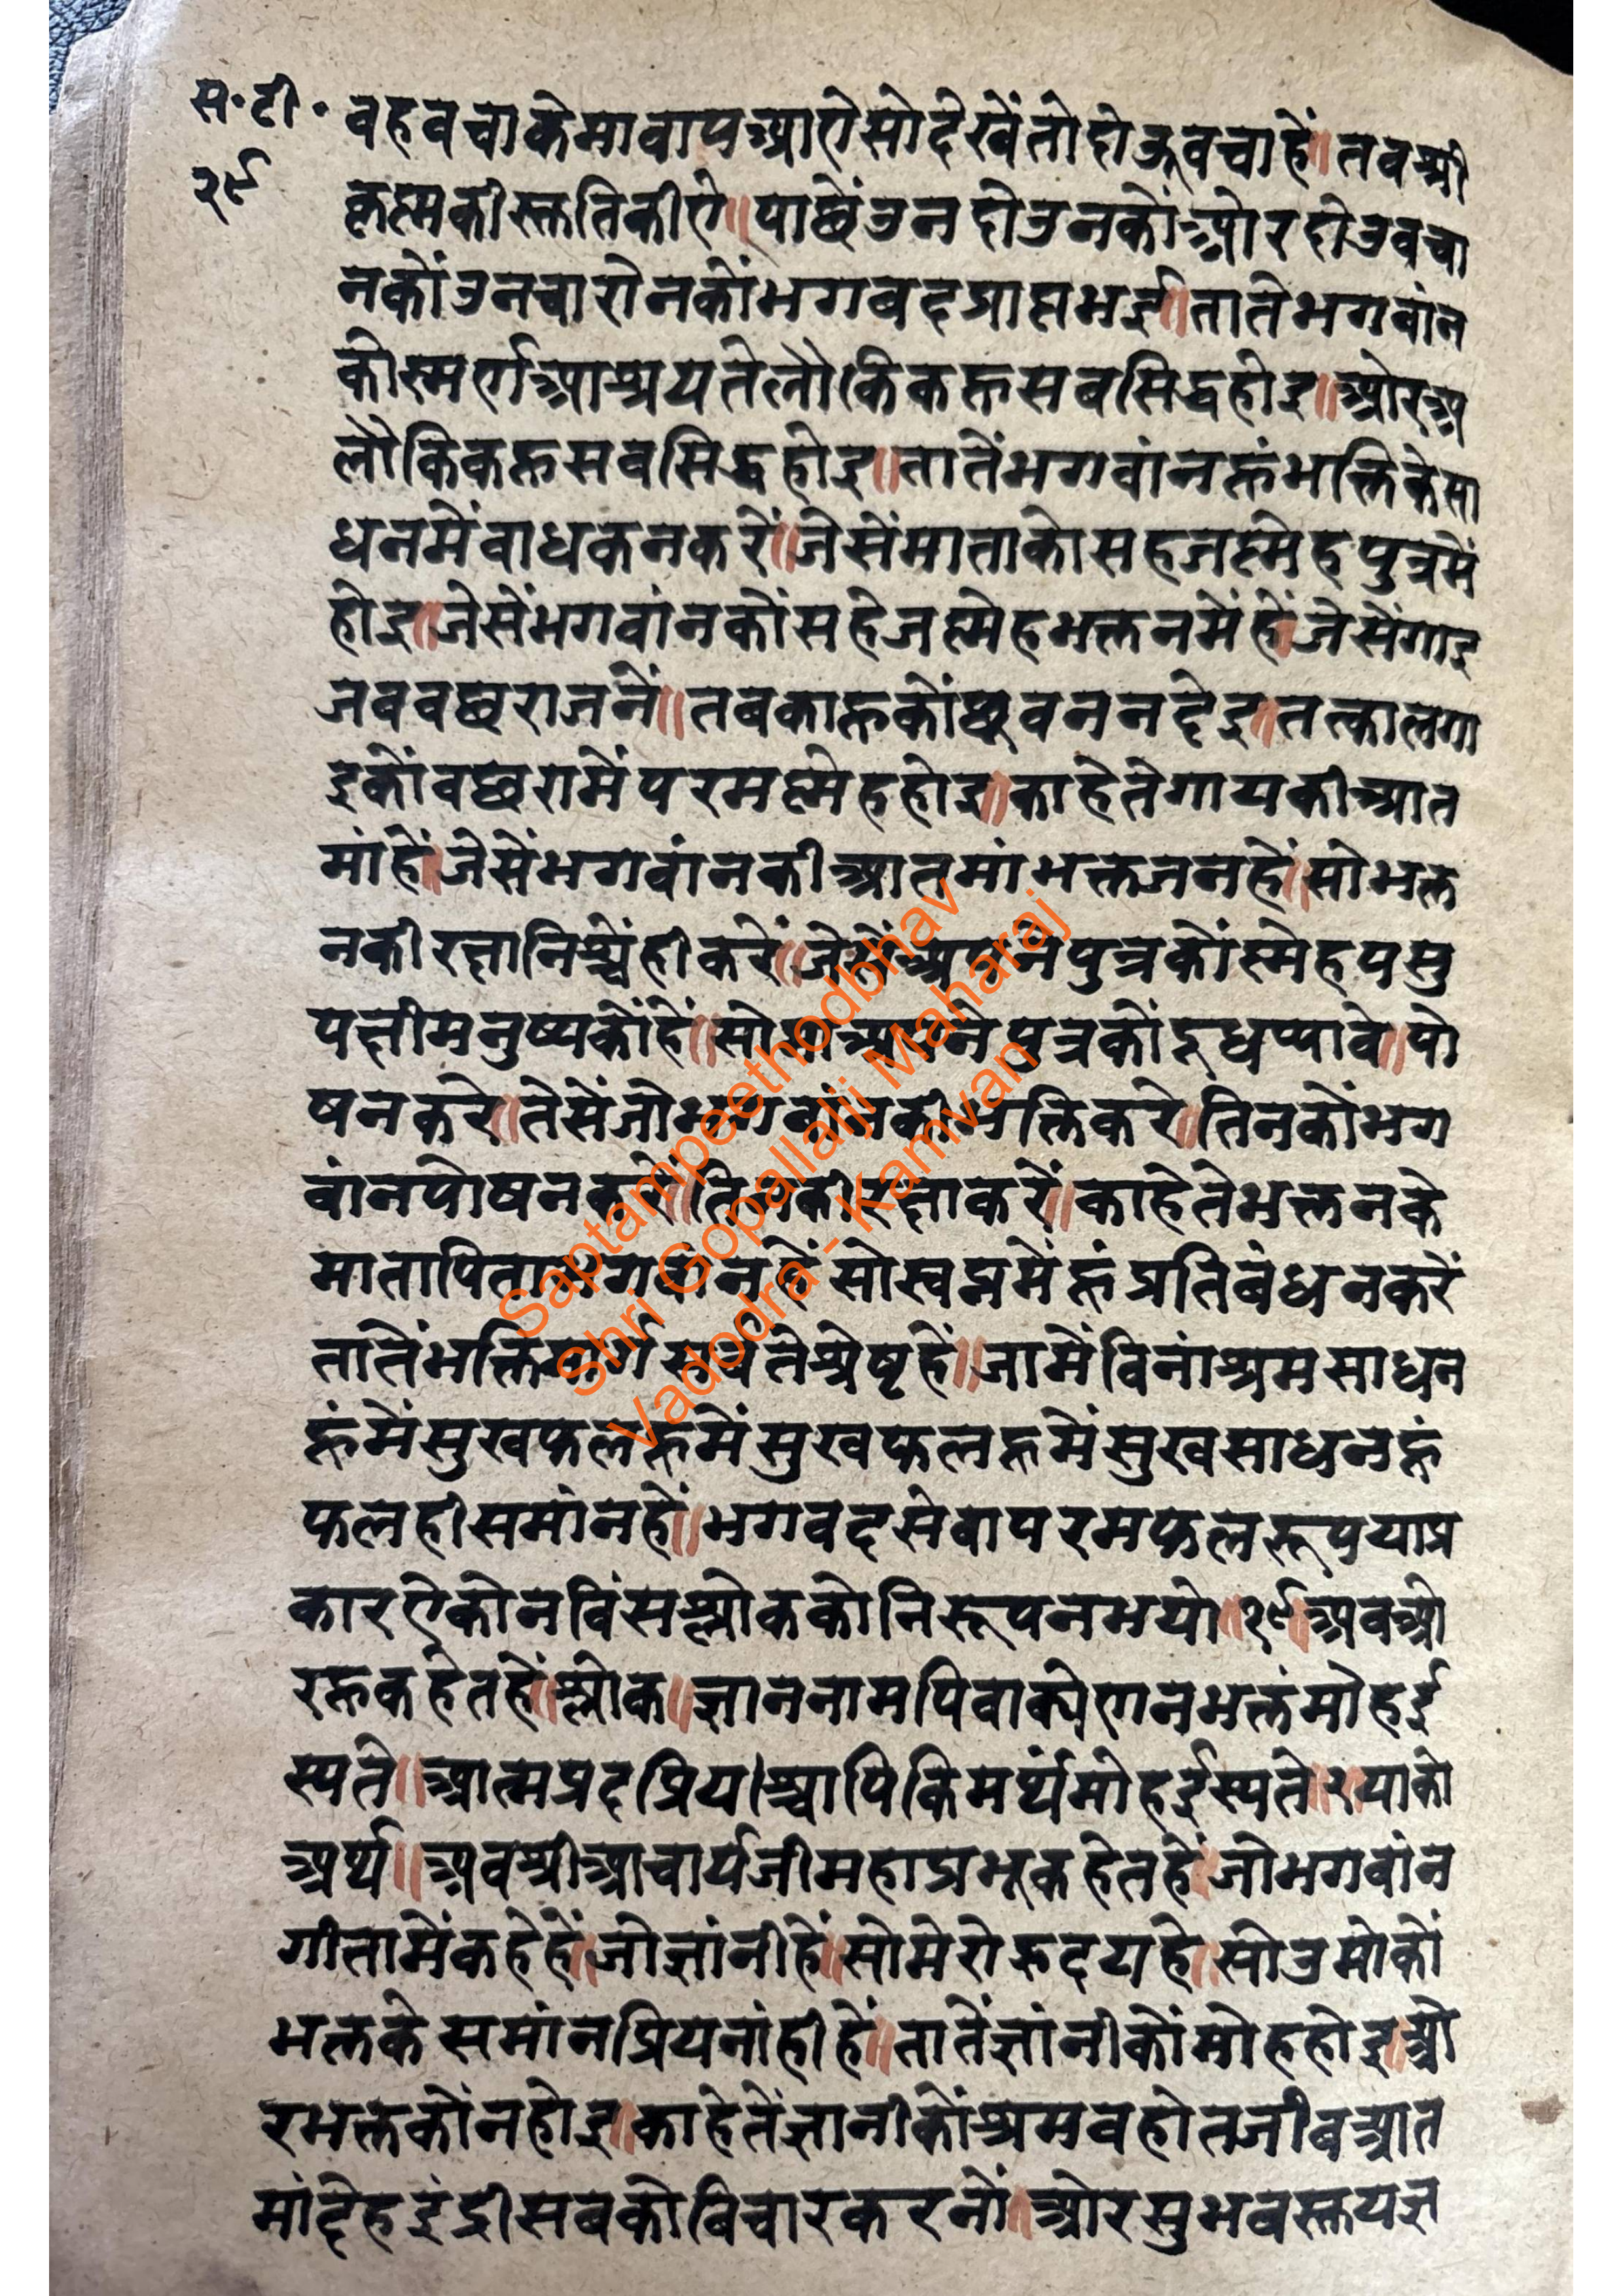 स॰टी॰
२९
वहवचाकेमावापआऐसोदेखेंतोदोऊवचाहें॥तवश्री
कृष्णकीस्तुतिकीऐ॥पाछेंउनदोउनकोंओरदोउवचा
नकोंउनचारोनकोंभगवदप्राप्तभई॥तातेभगवांन
कोस्मर्णआश्रयतेलौकिकहूसबसिद्धहोइ॥ओरअ
लौकिकहूसवसिद्धहोइ॥तातेंभगवांनहूंभक्तिकेसा
धनमेंवाधकनकरें॥जेसेंमाताकोसहजस्नेहपुत्रमें
होइ॥जेसेंभगवांनकोंसहेजस्नेहभक्तनमेंहें॥जेसेंगाइ
जबवछराजनें॥तबकाहूकोंछुवननदेइ॥तत्कालगा
इकोंवछरामेंपरमस्नेहहोइ॥काहेतेगायकीआत
मांहें॥जेसेंभगवांनकीआतमांभक्तजनहें॥सोभक्त
नकीरक्षानिश्चेंहीकरें॥जेसेंअपनेपुत्रकोंस्नेहपसु
पक्षीमनुष्यकोंहें॥सोअपनेपुत्रकोंदूधप्यावे॥पो
षनकरे॥तेसेंजोभगवांनकीभक्तिकरे॥तिनकोंभग
वांनपोषनकरें॥तिनकीरक्षाकरें॥काहेतेभक्तनके
मातापिताभगवांनहें॥सोस्वप्नमेंहूंप्रतिबंधनकरें
तातेंभक्तिमार्गसर्वतेश्रेष्टहें॥जामेंविनांश्रमसाधन
हूंमेंसुखफलहूमेंसुखफलहूमेंसुखसाधनहूं
फलहीसमांनहें॥भगवदसेवापरमफलरूपयाप्र
कारऐकोनविंसश्लोककोनिरूपनभयो॥१९॥अवओ
रहूकहेतहें॥श्लोक॥ज्ञाननामपिवाक्येणनभक्तंमोहई
स्यते॥आत्मप्रदप्रियाश्चापिकिमर्थंमोहईस्यते॥२॥याको
अर्थ॥अवश्रीआचार्यजीमहाप्रभूकहेतहें॥जोभगवांन
गीतामेंकहेहें॥जोज्ञांनीहें॥सोमेरोह्रदयहे॥सोउमोकों
भक्तकेसमांनप्रियनांहीहें॥तातेंज्ञांनीकोंमोहहोइ॥ओ
रभक्तकोंनहोइ॥काहेतेंज्ञानीकोंश्रमवहोतजीबआत
मांदेहइंद्रीसबकोविचारकरनों॥ओरसुभबस्तयज्ञ
Saptampeethodbhav
Shri Gopallalji Maharaj
Vadodra - Kamvan